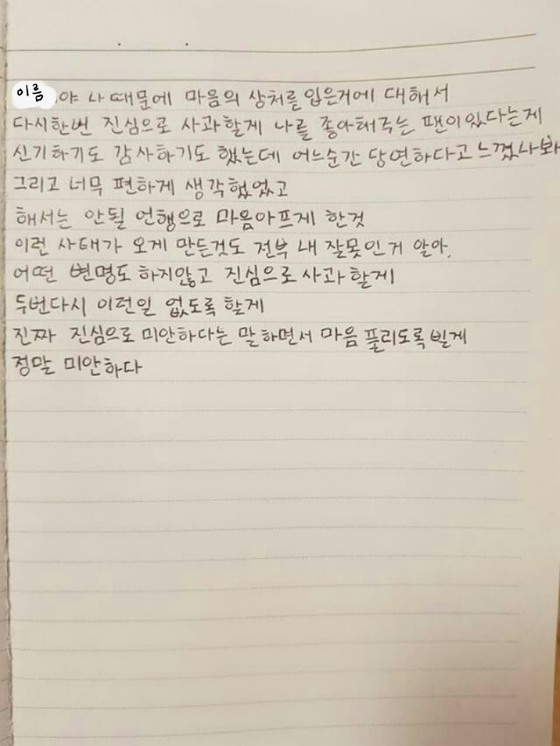 이름야 나 때문에 마음의 상처를 입은거에 대해서
다시한번 진심으로 사과할게 나를 좋아해주는 팬이있다는게
신기하기도 감사하기도 했는데 어느순간 당연하다고 느꼈나봐
그리고 너무 편하게 생각했었고
해서는 안될 언행으로 마음아프게 한것
이런 사태가 오게 만든것도 전부 내 잘못인거 알아.
어떤 변명도 하지않고 진심으로 사과할게
두번다시 이런일 없도록 할게
진짜 진심으로 미안하다는 말하면서 마음 풀리도록 빌게
정말 미안하다